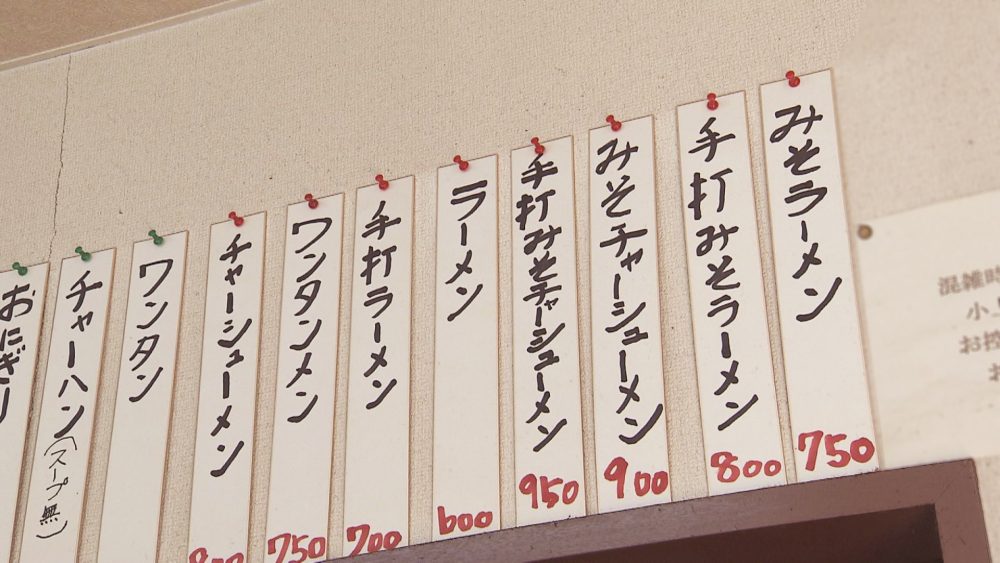 みそラーメン 750
手打みそラーメン 800
みそチャーシューメン 900
手打みそチャーシューメン 950
ラーメン 600
手打ラーメン 700
ワンタンメン 750
チャーシューメン
ワンタン
チャーハン(スープ無)
おにぎり
混雑時
小
お控
お